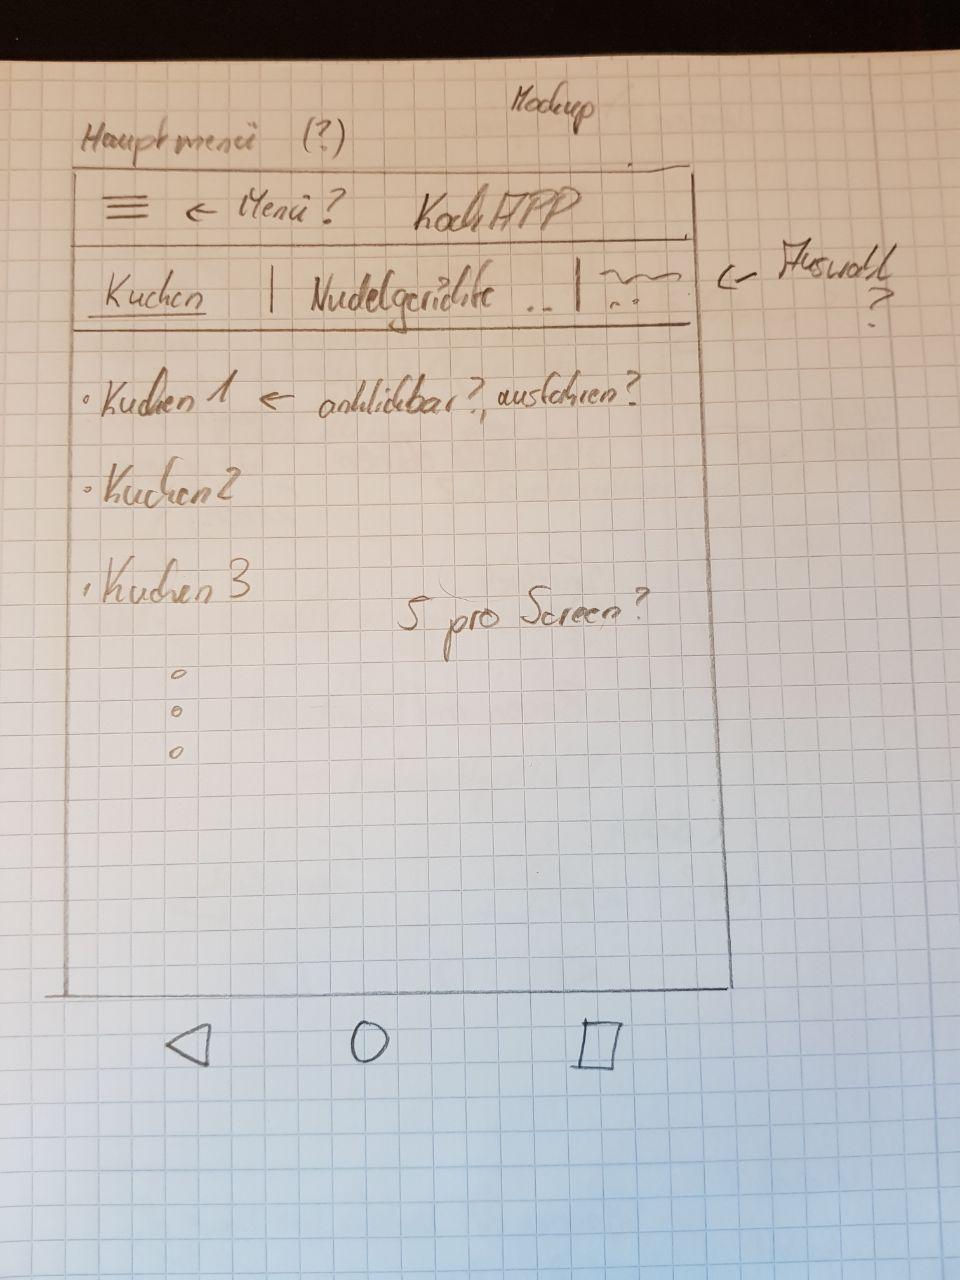 Mockup
Hauptmenü (?)
← Menü? KochAPP
Kuchen | Nudelgerichte .. | ← Auswahl
?
• Kuchen 1 ← anklickbar?, ausfahren?
• Kuchen 2
• Kuchen 3
5 pro Screen?